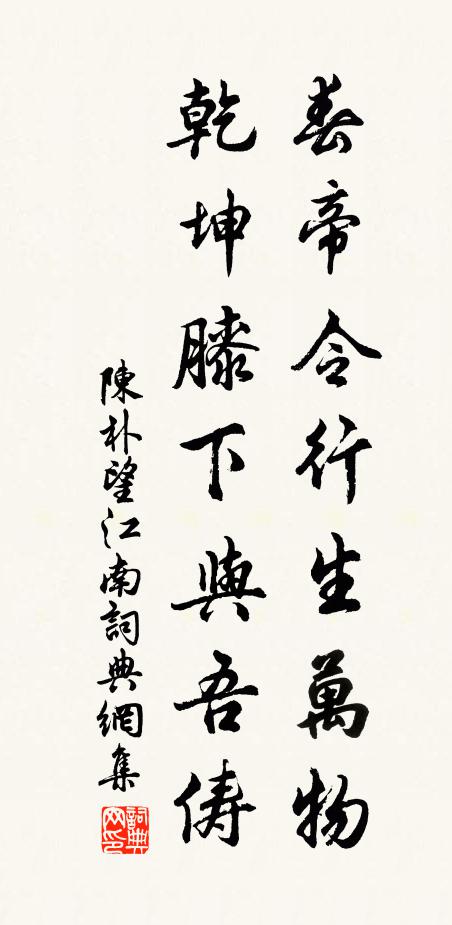 春帝令行生萬物
乾坤膝下與吾儔
陳朴望江南詞典網集
詞典
网印